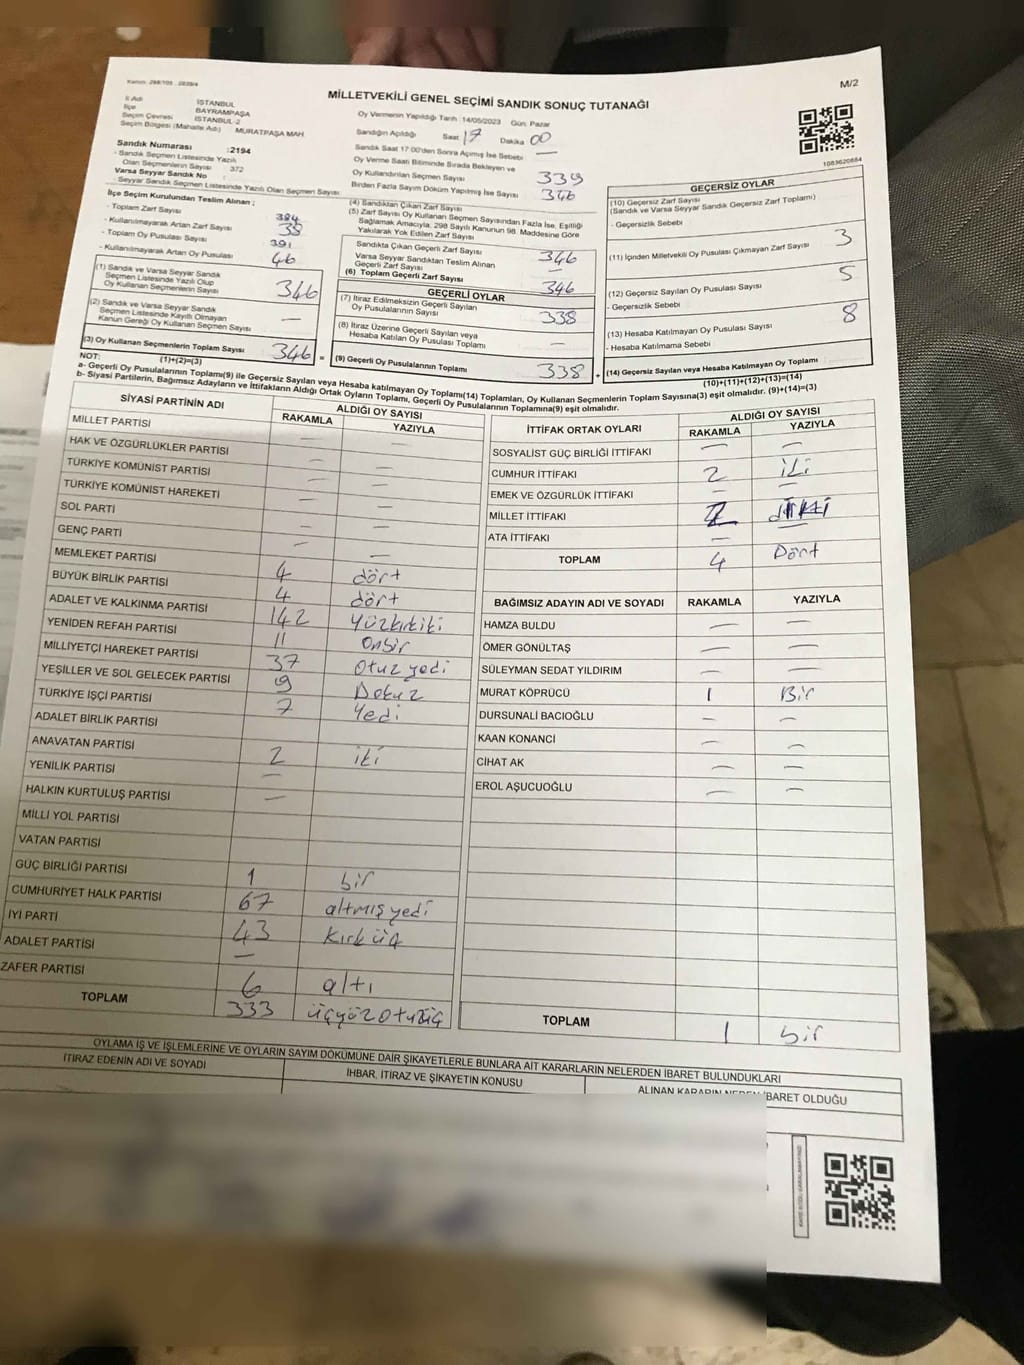 M/2
MİLLETVEKİLİ GENEL SEÇİMİ SANDIK SONUÇ TUTANAĞI
İl Adı İSTANBUL
İlçe BAYRAMPAŞA
Seçim Çevresi İSTANBUL-2
Seçim Bölgesi (Mahalle Adı) MURATPAŞA MAH.
Sandık Numarası :2194
- Sandık Seçmen Listesinde Yazılı
Olan Seçmenlerin Sayısı : 372
Varsa Seyyar Sandık No :
- Seyyar Sandık Seçmen Listesinde Yazılı Olan Seçmen Sayısı:
Oy Vermenin Yapıldığı Tarih :14/05/2023 Gün: Pazar
Sandığın Açıldığı Saat 17 Dakika 00
Sandık Saat 17:00'den Sonra Açılmış İse Sebebi —
Oy Verme Saati Bitiminde Sırada Bekleyen ve
Oy Kullandırılan Seçmen Sayısı 339
Birden Fazla Sayım Döküm Yapılmış İse Sayısı 346
1083620884
İlçe Seçim Kurulundan Teslim Alınan ;
- Toplam Zarf Sayısı 384
- Kullanılmayarak Artan Zarf Sayısı 38
- Toplam Oy Pusulası Sayısı 391
- Kullanılmayarak Artan Oy Pusulası 46
(1) Sandık ve Varsa Seyyar Sandık
Seçmen Listesinde Yazılı Olup
Oy Kullanan Seçmenlerin Sayısı 346
(2) Sandık ve Varsa Seyyar Sandık
Seçmen Listesinde Kayıtlı Olmayan
Kanun Gereği Oy Kullanan Seçmen Sayısı —
(3) Oy Kullanan Seçmenlerin Toplam Sayısı 346 =
(1)+(2)=(3)
(4) Sandıktan Çıkan Zarf Sayısı
(5) Zarf Sayısı Oy Kullanan Seçmen Sayısından Fazla İse, Eşitliği
Sağlamak Amacıyla, 298 Sayılı Kanunun 98. Maddesine Göre
Yakılarak Yok Edilen Zarf Sayısı
Sandıkta Çıkan Geçerli Zarf Sayısı 346
Varsa Seyyar Sandıktan Teslim Alınan
Geçerli Zarf Sayısı —
(6) Toplam Geçerli Zarf Sayısı 346
GEÇERLİ OYLAR
(7) İtiraz Edilmeksizin Geçerli Sayılan
Oy Pusulalarının Sayısı 338
(8) İtiraz Üzerine Geçerli Sayılan veya
Hesaba Katılan Oy Pusulası Toplamı —
(9) Geçerli Oy Pusulalarının Toplamı 338 +
GEÇERSİZ OYLAR
(10) Geçersiz Zarf Sayısı
(Sandık ve Varsa Seyyar Sandık Geçersiz Zarf Toplamı)
- Geçersizlik Sebebi
(11) İçinden Milletvekili Oy Pusulası Çıkmayan Zarf Sayısı 3
(12) Geçersiz Sayılan Oy Pusulası Sayısı 5
- Geçersizlik Sebebi
(13) Hesaba Katılmayan Oy Pusulası Sayısı 8
- Hesaba Katılmama Sebebi
(14) Geçersiz Sayılan veya Hesaba Katılmayan Oy Toplamı
(10)+(11)+(12)+(13)=(14)
NOT:
a- Geçerli Oy Pusulalarının Toplamı(9) ile Geçersiz Sayılan veya Hesaba katılmayan Oy Toplamı(14) Toplamları, Oy Kullanan Seçmenlerin Toplam Sayısına(3) eşit olmalıdır. (9)+(14)=(3)
b- Siyasi Partilerin, Bağımsız Adayların ve İttifakların Aldığı Ortak Oyların Toplamı, Geçerli Oy Pusulalarının Toplamına(9) eşit olmalıdır.
SİYASİ PARTİNİN ADI ALDIĞI OY SAYISI
RAKAMLA YAZIYLA
MİLLET PARTİSİ — —
HAK VE ÖZGÜRLÜKLER PARTİSİ
TÜRKİYE KOMÜNİST PARTİSİ — —
TÜRKİYE KOMÜNİST HAREKETİ — —
SOL PARTİ — —
GENÇ PARTİ — —
MEMLEKET PARTİSİ — —
BÜYÜK BİRLİK PARTİSİ 4 dört
ADALET VE KALKINMA PARTİSİ 4 dört
YENİDEN REFAH PARTİSİ 142 Yüzkırkiki
MİLLİYETÇİ HAREKET PARTİSİ 11 Onbir
YEŞİLLER VE SOL GELECEK PARTİSİ 37 Otuz yedi
TÜRKİYE İŞÇİ PARTİSİ 9 Dokuz
ADALET BİRLİK PARTİSİ 7 Yedi
ANAVATAN PARTİSİ
YENİLİK PARTİSİ 2 iki
HALKIN KURTULUŞ PARTİSİ —
MİLLİ YOL PARTİSİ —
VATAN PARTİSİ
GÜÇ BİRLİĞİ PARTİSİ
CUMHURİYET HALK PARTİSİ 1 bir
İYİ PARTİ 67 altmış yedi
ADALET PARTİSİ 43 Kırk üç
ZAFER PARTİSİ —
6 altı
TOPLAM 333 üçyüzotuzüç
İTTİFAK ORTAK OYLARI ALDIĞI OY SAYISI
RAKAMLA YAZIYLA
SOSYALİST GÜÇ BİRLİĞİ İTTİFAKI — —
CUMHUR İTTİFAKI 2 iki
EMEK VE ÖZGÜRLÜK İTTİFAKI — —
MİLLET İTTİFAKI 2 iki
ATA İTTİFAKI — —
TOPLAM 4 Dört
BAĞIMSIZ ADAYIN ADI VE SOYADI RAKAMLA YAZIYLA
HAMZA BULDU — —
ÖMER GÖNÜLTAŞ — —
SÜLEYMAN SEDAT YILDIRIM — —
MURAT KÖPRÜCÜ 1 Bir
DURSUNALİ BACIOĞLU — —
KAAN KONANCİ — —
CİHAT AK — —
EROL AŞUCUOĞLU — —
TOPLAM 1 bir
OYLAMA İŞ VE İŞLEMLERİNE VE OYLARIN SAYIM DÖKÜMÜNE DAİR ŞİKAYETLERLE BUNLARA AİT KARARLARIN NELERDEN İBARET BULUNDUKLARI
İTİRAZ EDENİN ADI VE SOYADI İHBAR, İTİRAZ VE ŞİKAYETİN KONUSU ALINAN KARARIN NEDEN İBARET OLDUĞU